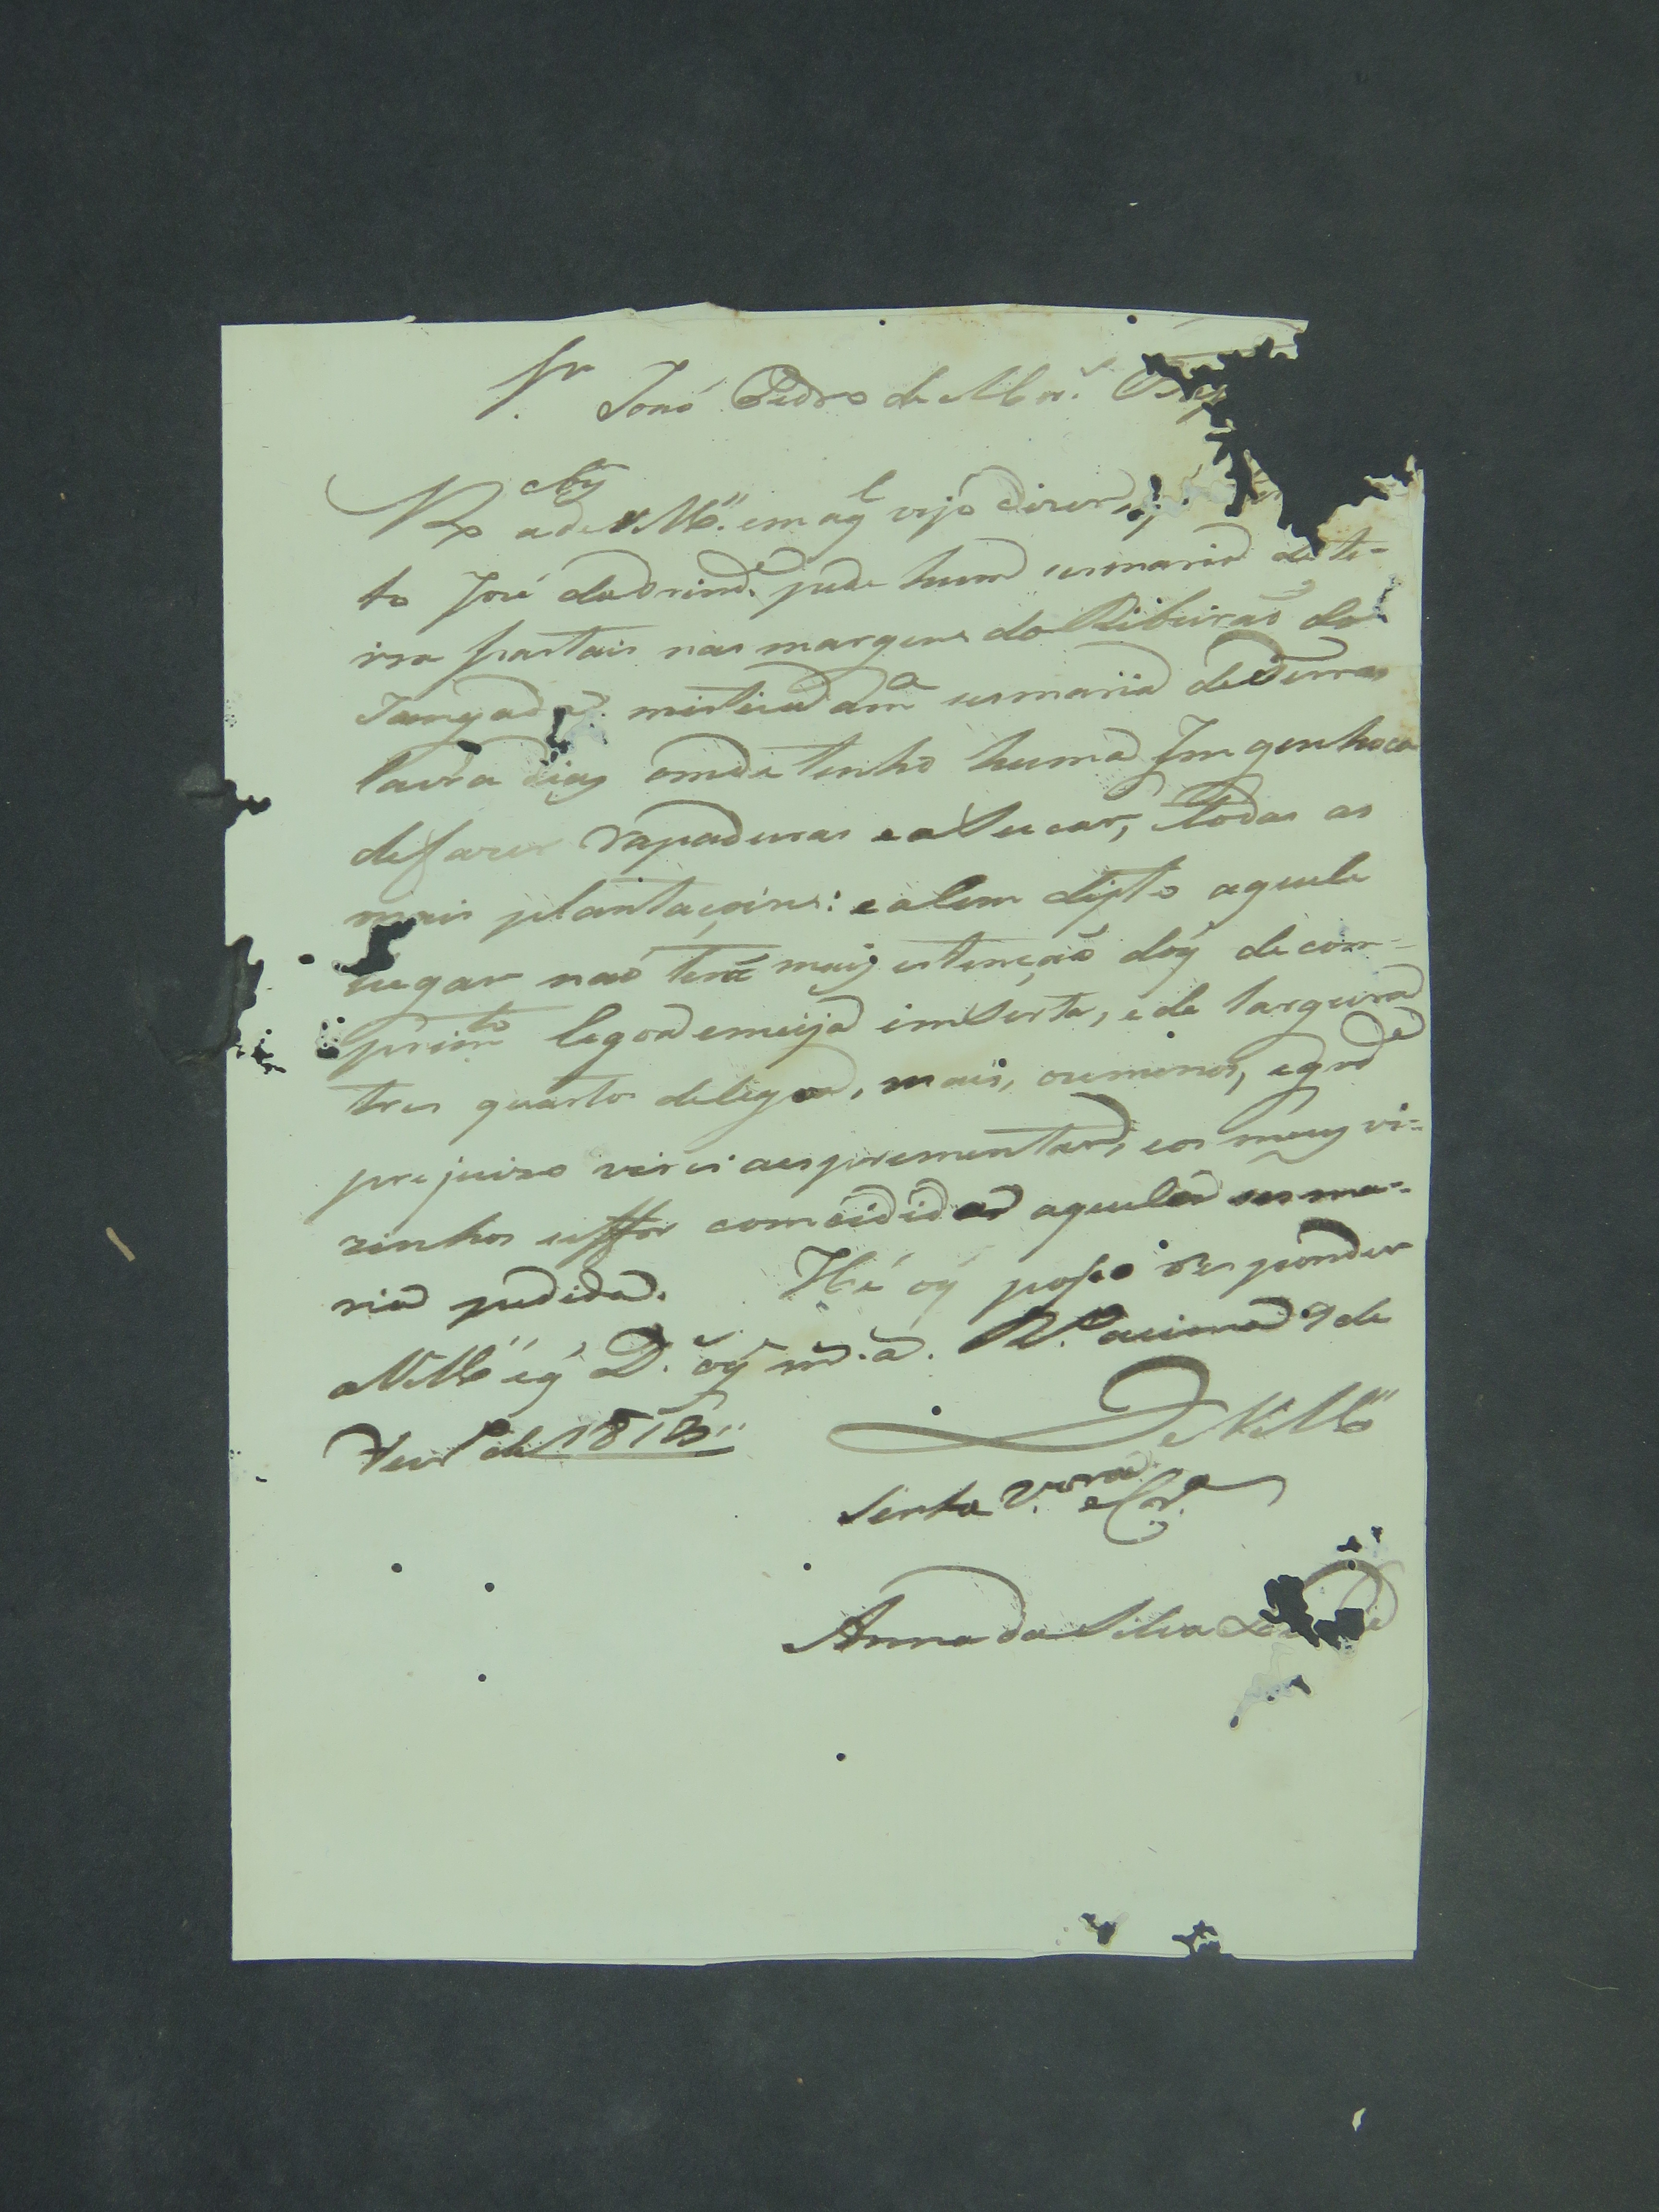 Sr João Pedro de
Rcby a de VMce em aql vejo dizer
to José da Trinde pede huma sesmaria de te-
rra pastais nas margens do Ribeirao da
mistica da mª sesmaria de terras
lavradias omde tenho huma Imgenhoca
de fazer rapaduras e asucar, e todas as
mais plantaçoins: e alem disto aquele
lugar naõ terá mais estençaõ doq̃ de com-
primto legoa e meija imserta, e de largura
tres quartos de legoa, mais, ou menos, e grde
prejuizo virei a espremementar, e os meus vi-
zinhos se for comsidida aquela sesma-
ria pedida. Hé oq̃ poso responder
a VMce eq̃ Ds. acima 9 de
Fevro de 1818
De VMce
Serta Vora e Cra
Anna da Silva